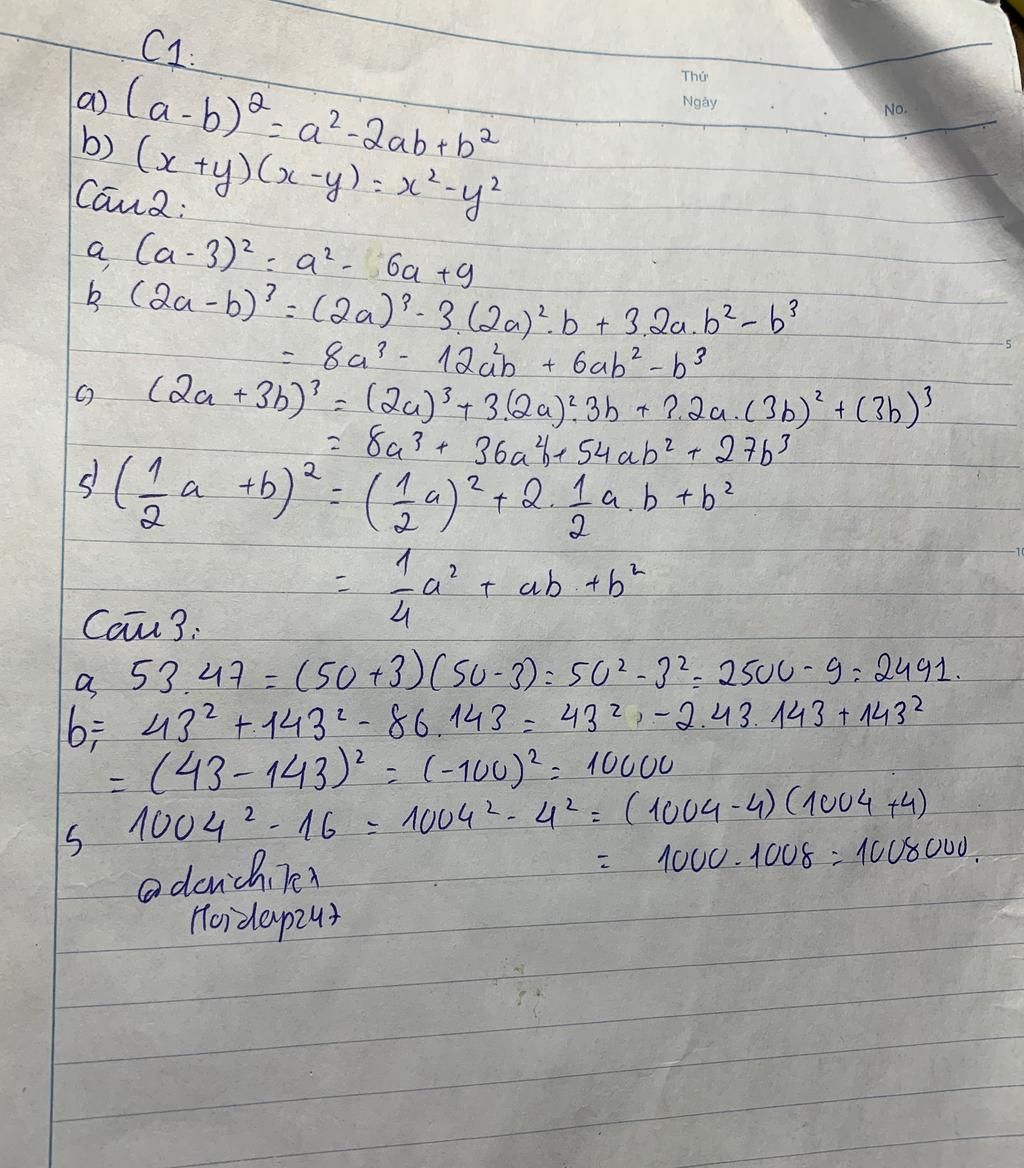 C1:
Thứ
Ngày
No.
a) (a-b)² = a² - 2ab + b²
b) (x+y)(x-y) = x² - y²
Câu 2:
a, (a-3)² = a² - 6a + 9
b, (2a-b)³ = (2a)³ - 3.(2a)².b + 3.2a.b² - b³
= 8a³ - 12a²b + 6ab² - b³
5
c, (2a+3b)³ = (2a)³ + 3.(2a)².3b + 3.2a.(3b)² + (3b)³
= 8a³ + 36a²b + 54ab² + 27b³
d, (1/2 a + b)² = (1/2 a)² + 2.1/2 a.b + b²
10
= 1/4 a² + ab + b²
Câu 3:
a, 53.47 = (50+3)(50-3) = 50² - 3² = 2500 - 9 = 2491.
b, 43² + 143² - 86.143 = 43² - 2.43.143 + 143²
= (43-143)² = (-100)² = 10000
c, 1004² - 16 = 1004² - 4² = (1004-4)(1004+4)
= 1000.1008 = 1008000.
Hoidap247